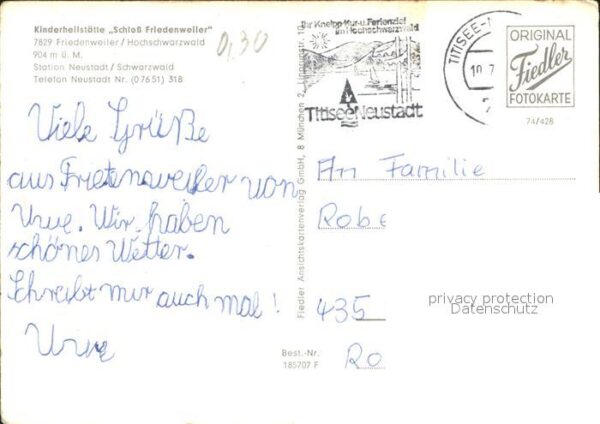 Kinderheilstätte „Schloß Friedenweiler"
7829 Friedenweiler / Hochschwarzwald
904 m ü. M.
Station Neustadt / Schwarzwald
Telefon Neustadt Nr. (0 76 51) 318
0,30
Ihr Kneipp-Kur-u. Ferienziel
im Hochschwarzwald
Titisee Neustadt
TITISEE-N
10.7
ORIGINAL
Fiedler
FOTOKARTE
74/428
Viele Grüße
aus Frietensweiler von
Uwe. Wir haben
schönes Wetter.
Schreibt mir auch mal!
Uwe
Fiedler Ansichtskartenverlag GmbH, 8 München 2,
Best.-Nr.
185707 F
An Familie
Robe
435
Ro
privacy protection
Datenschutz